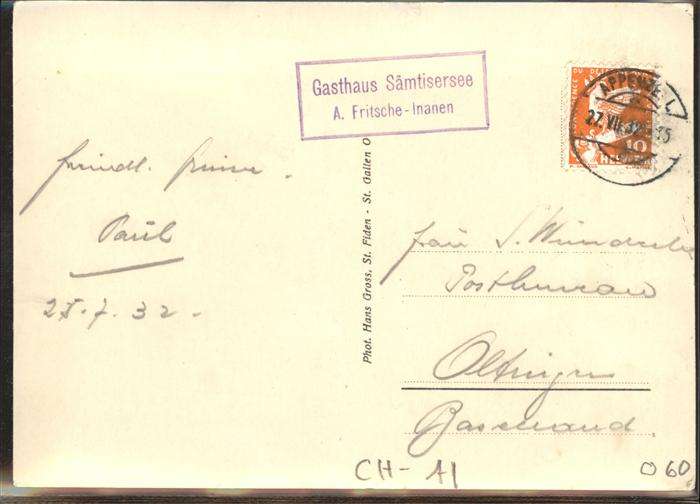 Gasthaus Sämtisersee
A. Fritsche-Inanen
APPENZELL
27. VII. 32
10
HELVETIA
freundl. Grüsse.
Paul
7. 32.
Phot. Hans Gross, St. Fiden - St. Gallen O
Postbureau
Oltingen
Baselland.
CH-AI
060